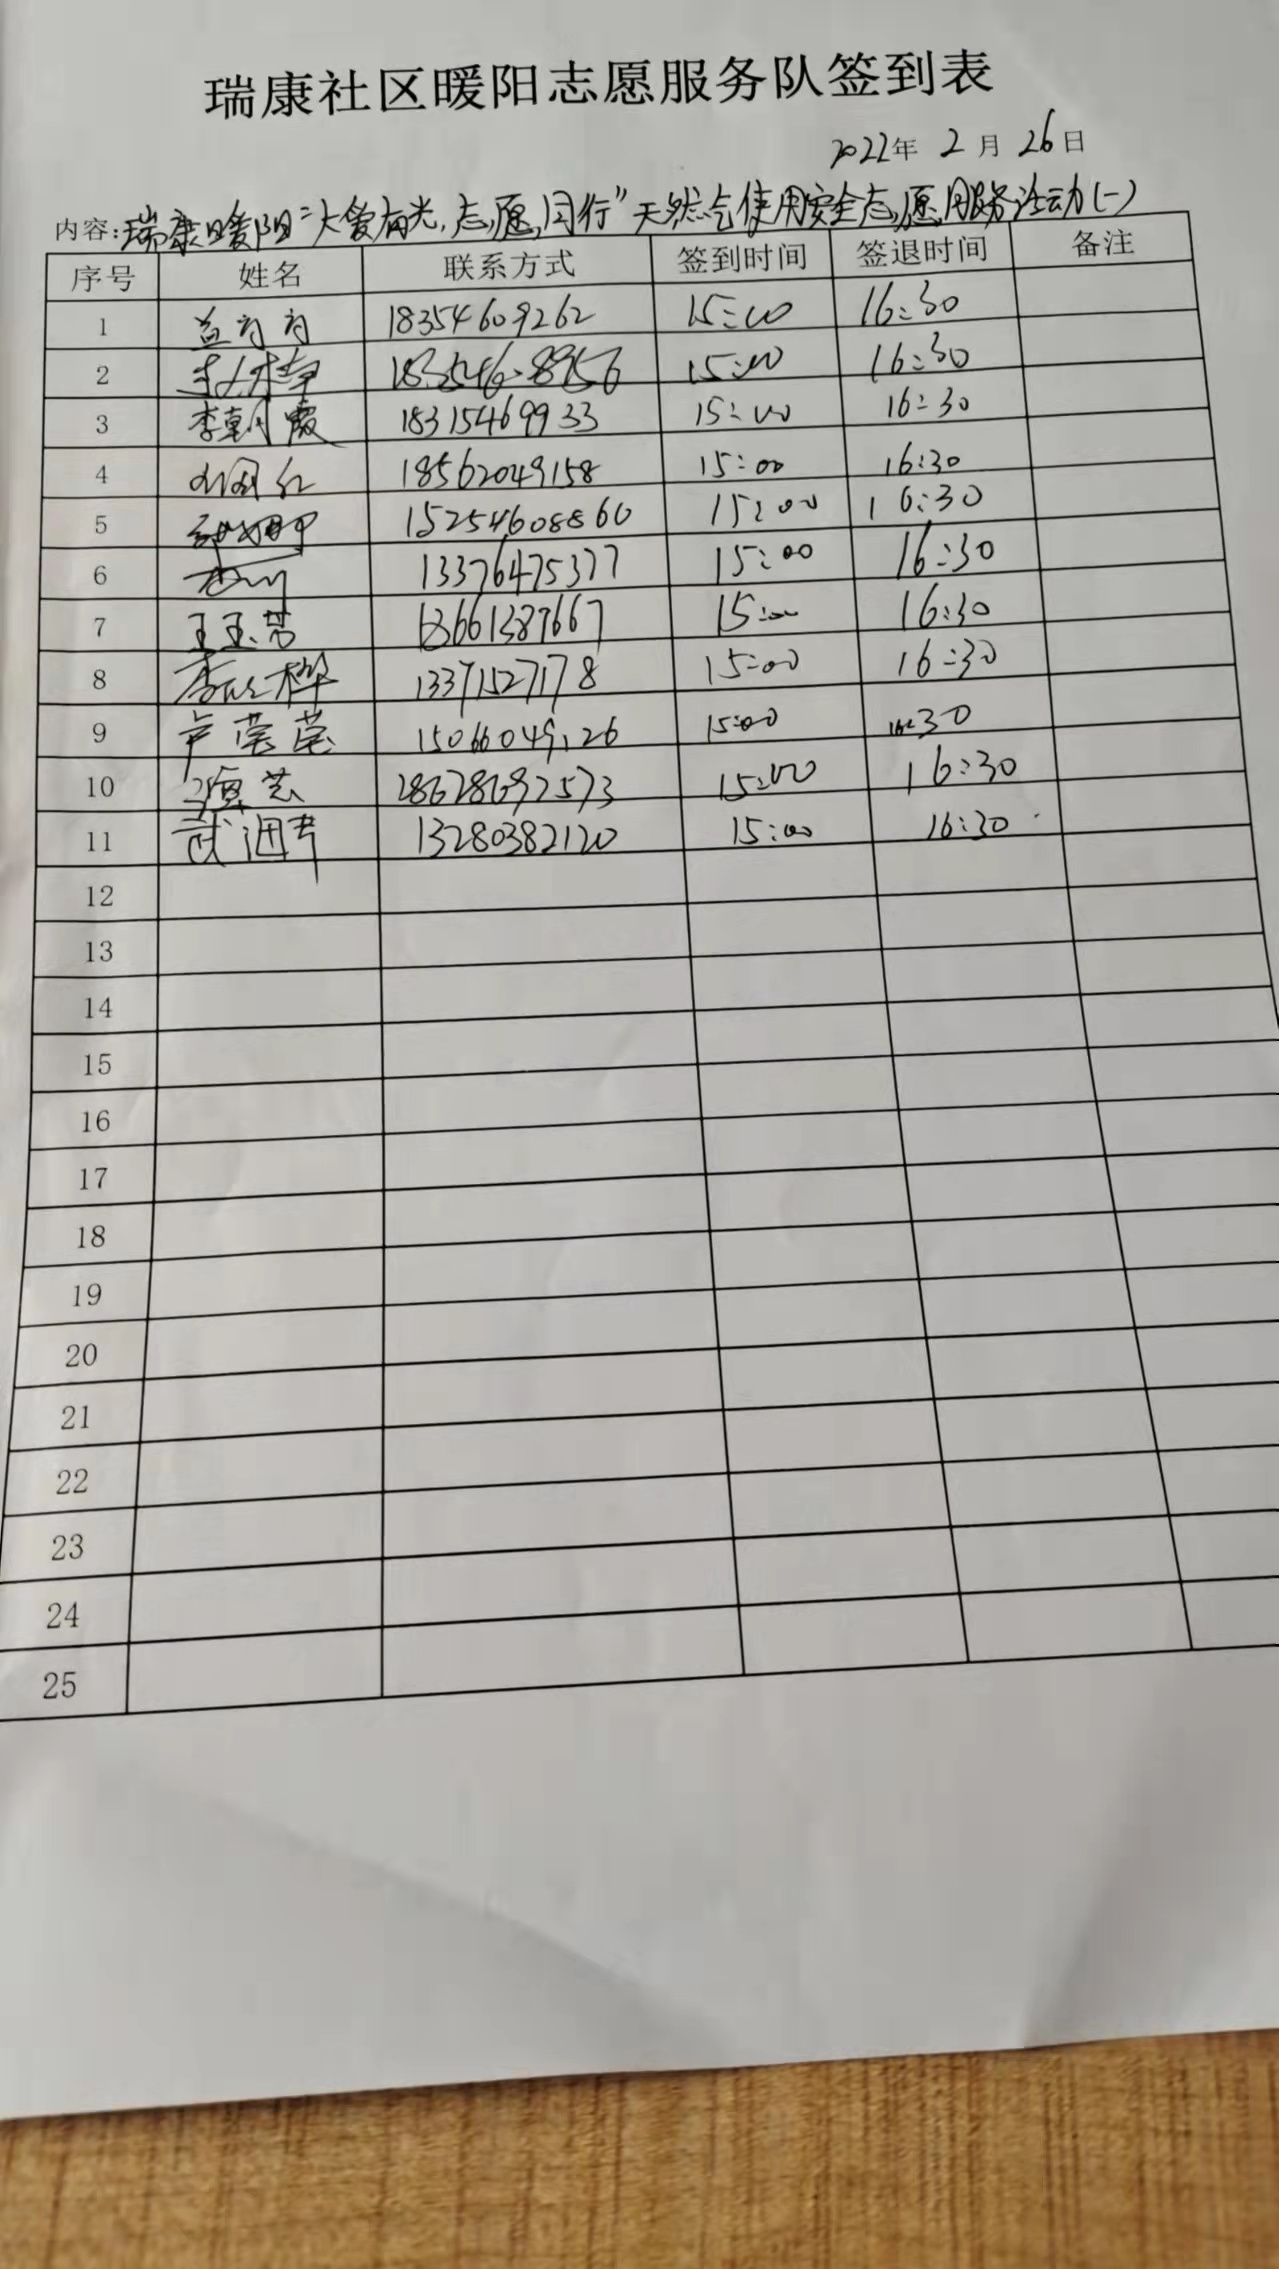 瑞康社区暖阳志愿服务队签到表
2022年 2月 26日
内容:瑞康暖阳"大爱有光,志愿同行"天然气使用安全志愿服务活动(一)
序号 姓名 联系方式 签到时间 签退时间 备注
1 18354609262 15:00 16:30
2 15:00 16:30
3 李朝霞 18315469933 15:00 16:30
4 18562049158 15:00 16:30
5 15254608860 15:00 16:30
6 13376475377 15:00 16:30
7 王玉芳 15:00 16:30
8 13371527178 15:00 16:30
9 卢莹莹 15066049126 15:00 16:30
10 18628692573 15:00 16:30
11 武 13280382120 15:00 16:30
12
13
14
15
16
17
18
19
20
21
22
23
24
25